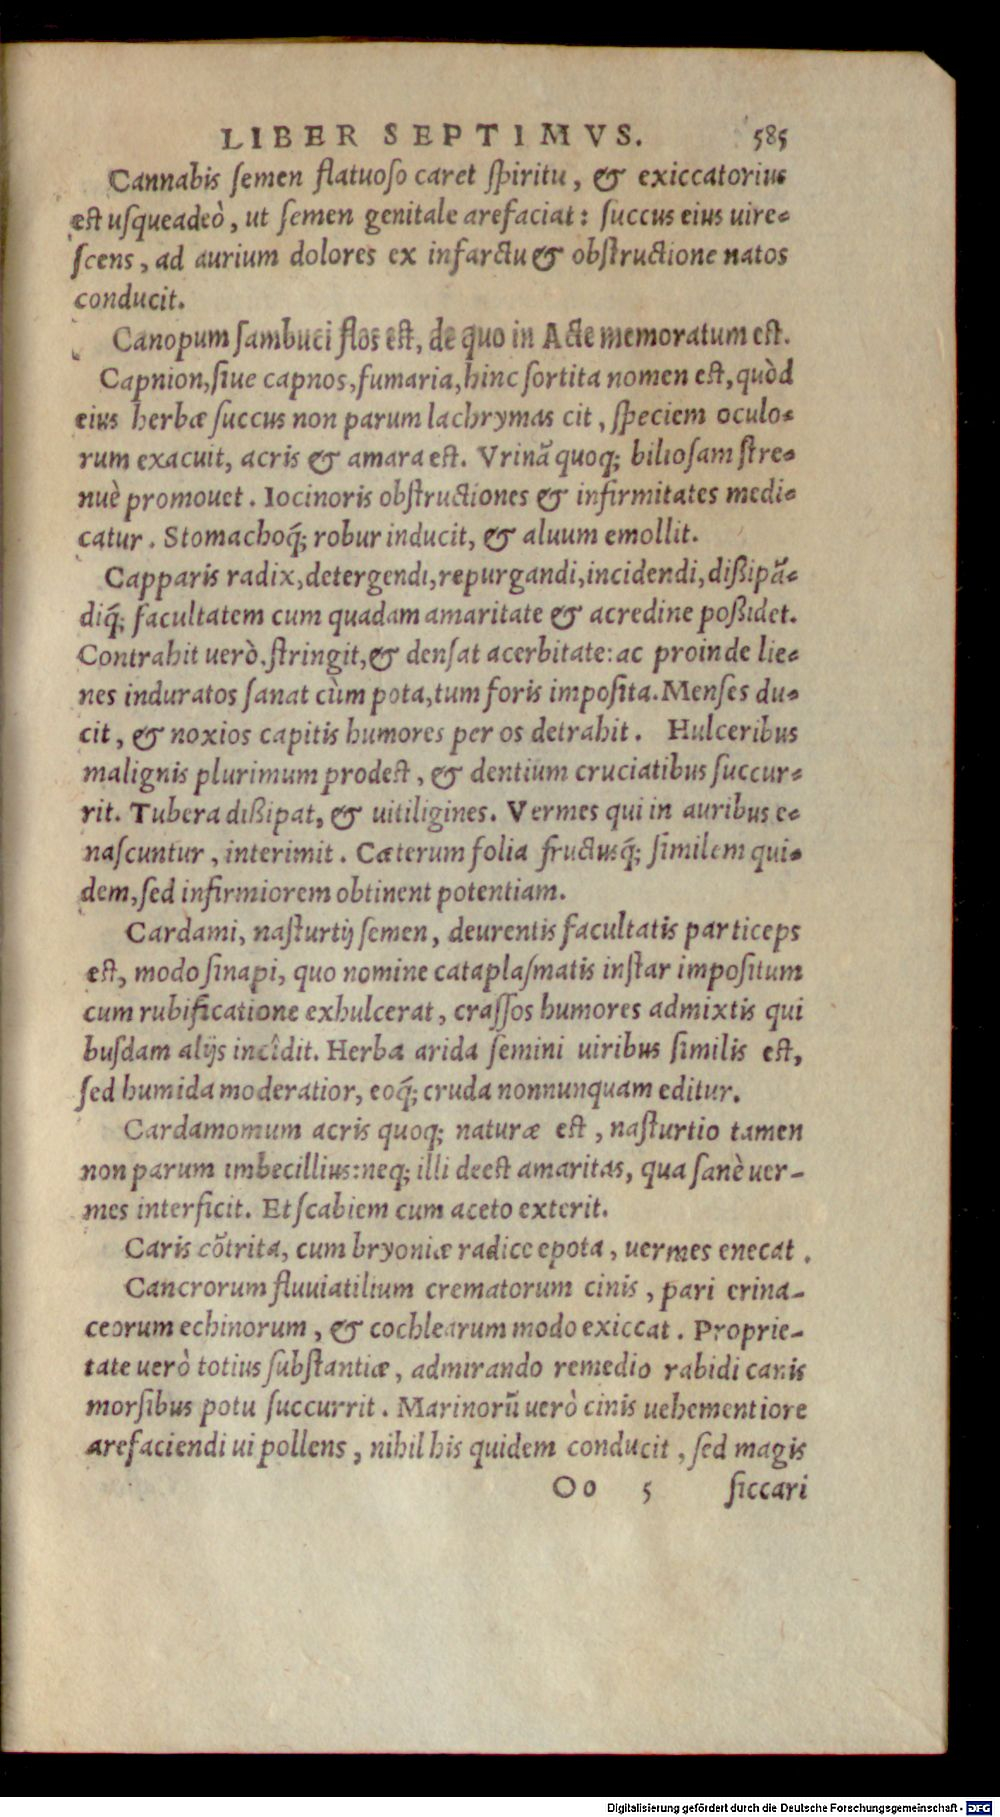 LIBER SEPTIMVS. 585
Cannabis ſemen flatuoſo caret ſpiritu, & exiccatorius
est uſqueadeò, ut ſemen genitale arefaciat: ſuccus eius uire-
ſcens, ad aurium dolores ex infarctu & obſtructione natos
conducit.
Canopum ſambuci flos eſt, de quo in Acte memoratum eſt.
Capnion, ſiue capnos, fumaria, hinc ſortita nomen eſt, quòd
eius herbæ ſuccus non parum lachrymas cit, ſpeciem oculo-
rum exacuit, acris & amara eſt. Vrinã quoq; bilioſam ſtre-
nuè promouet. Iocinoris obſtructiones & infirmitates medi-
catur. Stomachoq́; robur inducit, & aluum emollit.
Capparis radix, detergendi, repurgandi, incidendi, dißipã-
diq́; facultatem cum quadam amaritate & acredine poßidet.
Contrahit uerò. ſtringit, & denſat acerbitate: ac proinde lie-
nes induratos ſanat cùm pota, tum foris impoſita. Menſes du-
cit, & noxios capitis humores per os detrahit. Hulceribus
malignis plurimum prodeſt, & dentium cruciatibus ſuccur-
rit. Tubera dißipat, & uitiligines. Vermes qui in auribus e-
naſcuntur, interimit. Cæterum folia fructusq́; ſimilem qui-
dem, ſed infirmiorem obtinent potentiam.
Cardami, naſturtij ſemen, deurentis facultatis particeps
eſt, modo ſinapi, quo nomine cataplaſmatis inſtar impoſitum
cum rubificatione exhulcerat, craſſos humores admixtis qui
buſdam alijs incîdit. Herba arida ſemini uiribus ſimilis eſt,
ſed humida moderatior, eoq́; cruda nonnunquam editur.
Cardamomum acris quoq; naturæ eſt, naſturtio tamen
non parum imbecillius: neq; illi deeſt amaritas, qua ſanè uer-
mes interficit. Et ſcabiem cum aceto exterit.
Caris cõtrita, cum bryoniæ radice epota, uermes enecat.
Cancrorum fluuiatilium crematorum cinis, pari erina-
ceorum echinorum, & cochlearum modo exiccat. Proprie-
tate uerò totius ſubſtantiæ, admirando remedio rabidi canis
morſibus potu ſuccurrit. Marinorũ uerò cinis uehementiore
arefaciendi ui pollens, nihil his quidem conducit, ſed magis
Oo 5 ſiccari
Digitalisierung gefördert durch die Deutsche Forschungsgemeinschaft - DFG